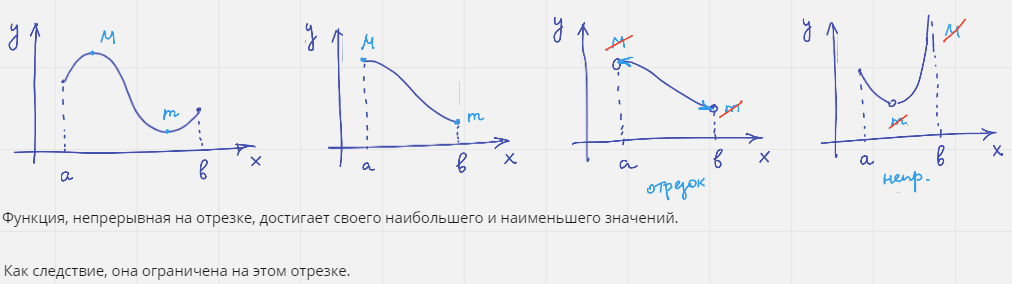 y M m a в x
y M m a в x
y M m a в x
отрезок
y M m a в x
непр.
Функция, непрерывная на отрезке, достигает своего наибольшего и наименьшего значений.
Как следствие, она ограничена на этом отрезке.